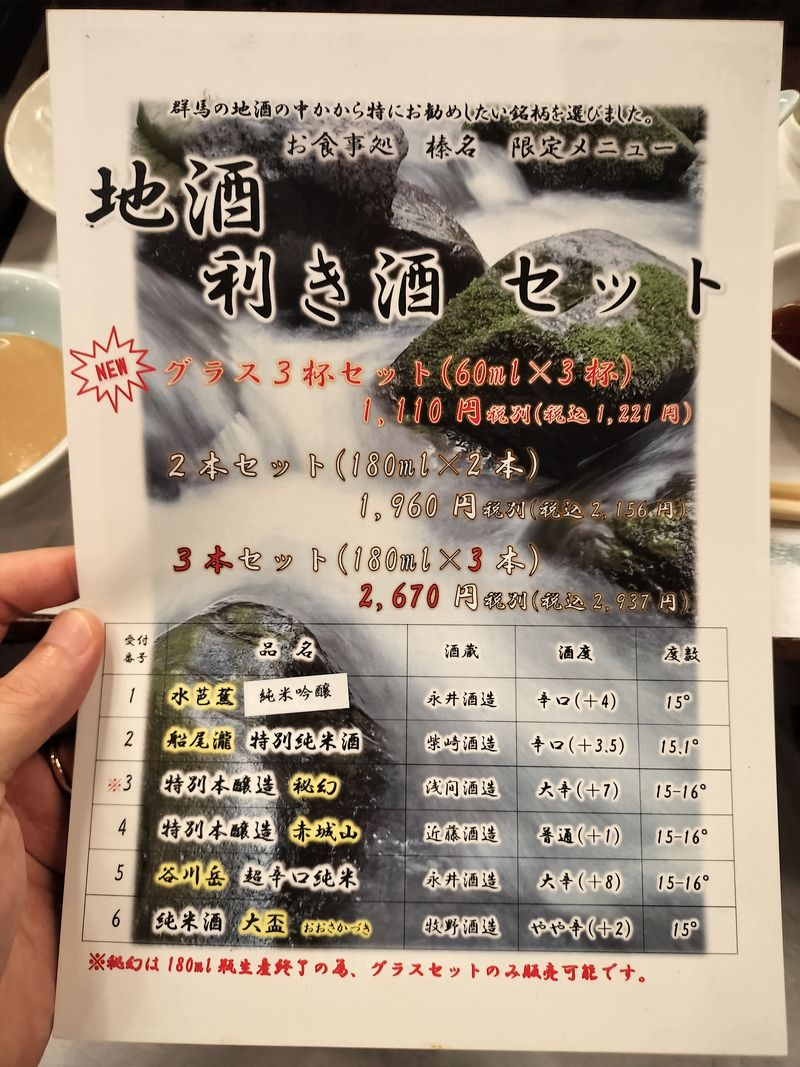 群馬の地酒の中かから特にお勧めしたい銘柄を選びました。
お食事処 榛名 限定メニュー
地酒
利き酒 セット
NEW グラス3杯セット(60ml×3杯)
1,110円税別(税込1,221円)
2本セット(180ml×2本)
1,960円税別(税込2,156円)
3本セット(180ml×3本)
2,670円税別(税込2,937円)
受付番号 品名 酒蔵 酒度 度数
1 水芭蕉 純米吟醸 永井酒造 辛口(+4) 15°
2 船尾瀧 特別純米酒 柴崎酒造 辛口(+3.5) 15.1°
※3 特別本醸造 秘幻 浅间酒造 大辛(+7) 15-16°
4 特別本醸造 赤城山 近藤酒造 普通(+1) 15-16°
5 谷川岳 超辛口純米 永井酒造 大辛(+8) 15-16°
6 純米酒 大盃 おおさかづき 牧野酒造 やや辛(+2) 15°
※秘幻は180ml瓶生産終了の為、グラスセットのみ販売可能です。